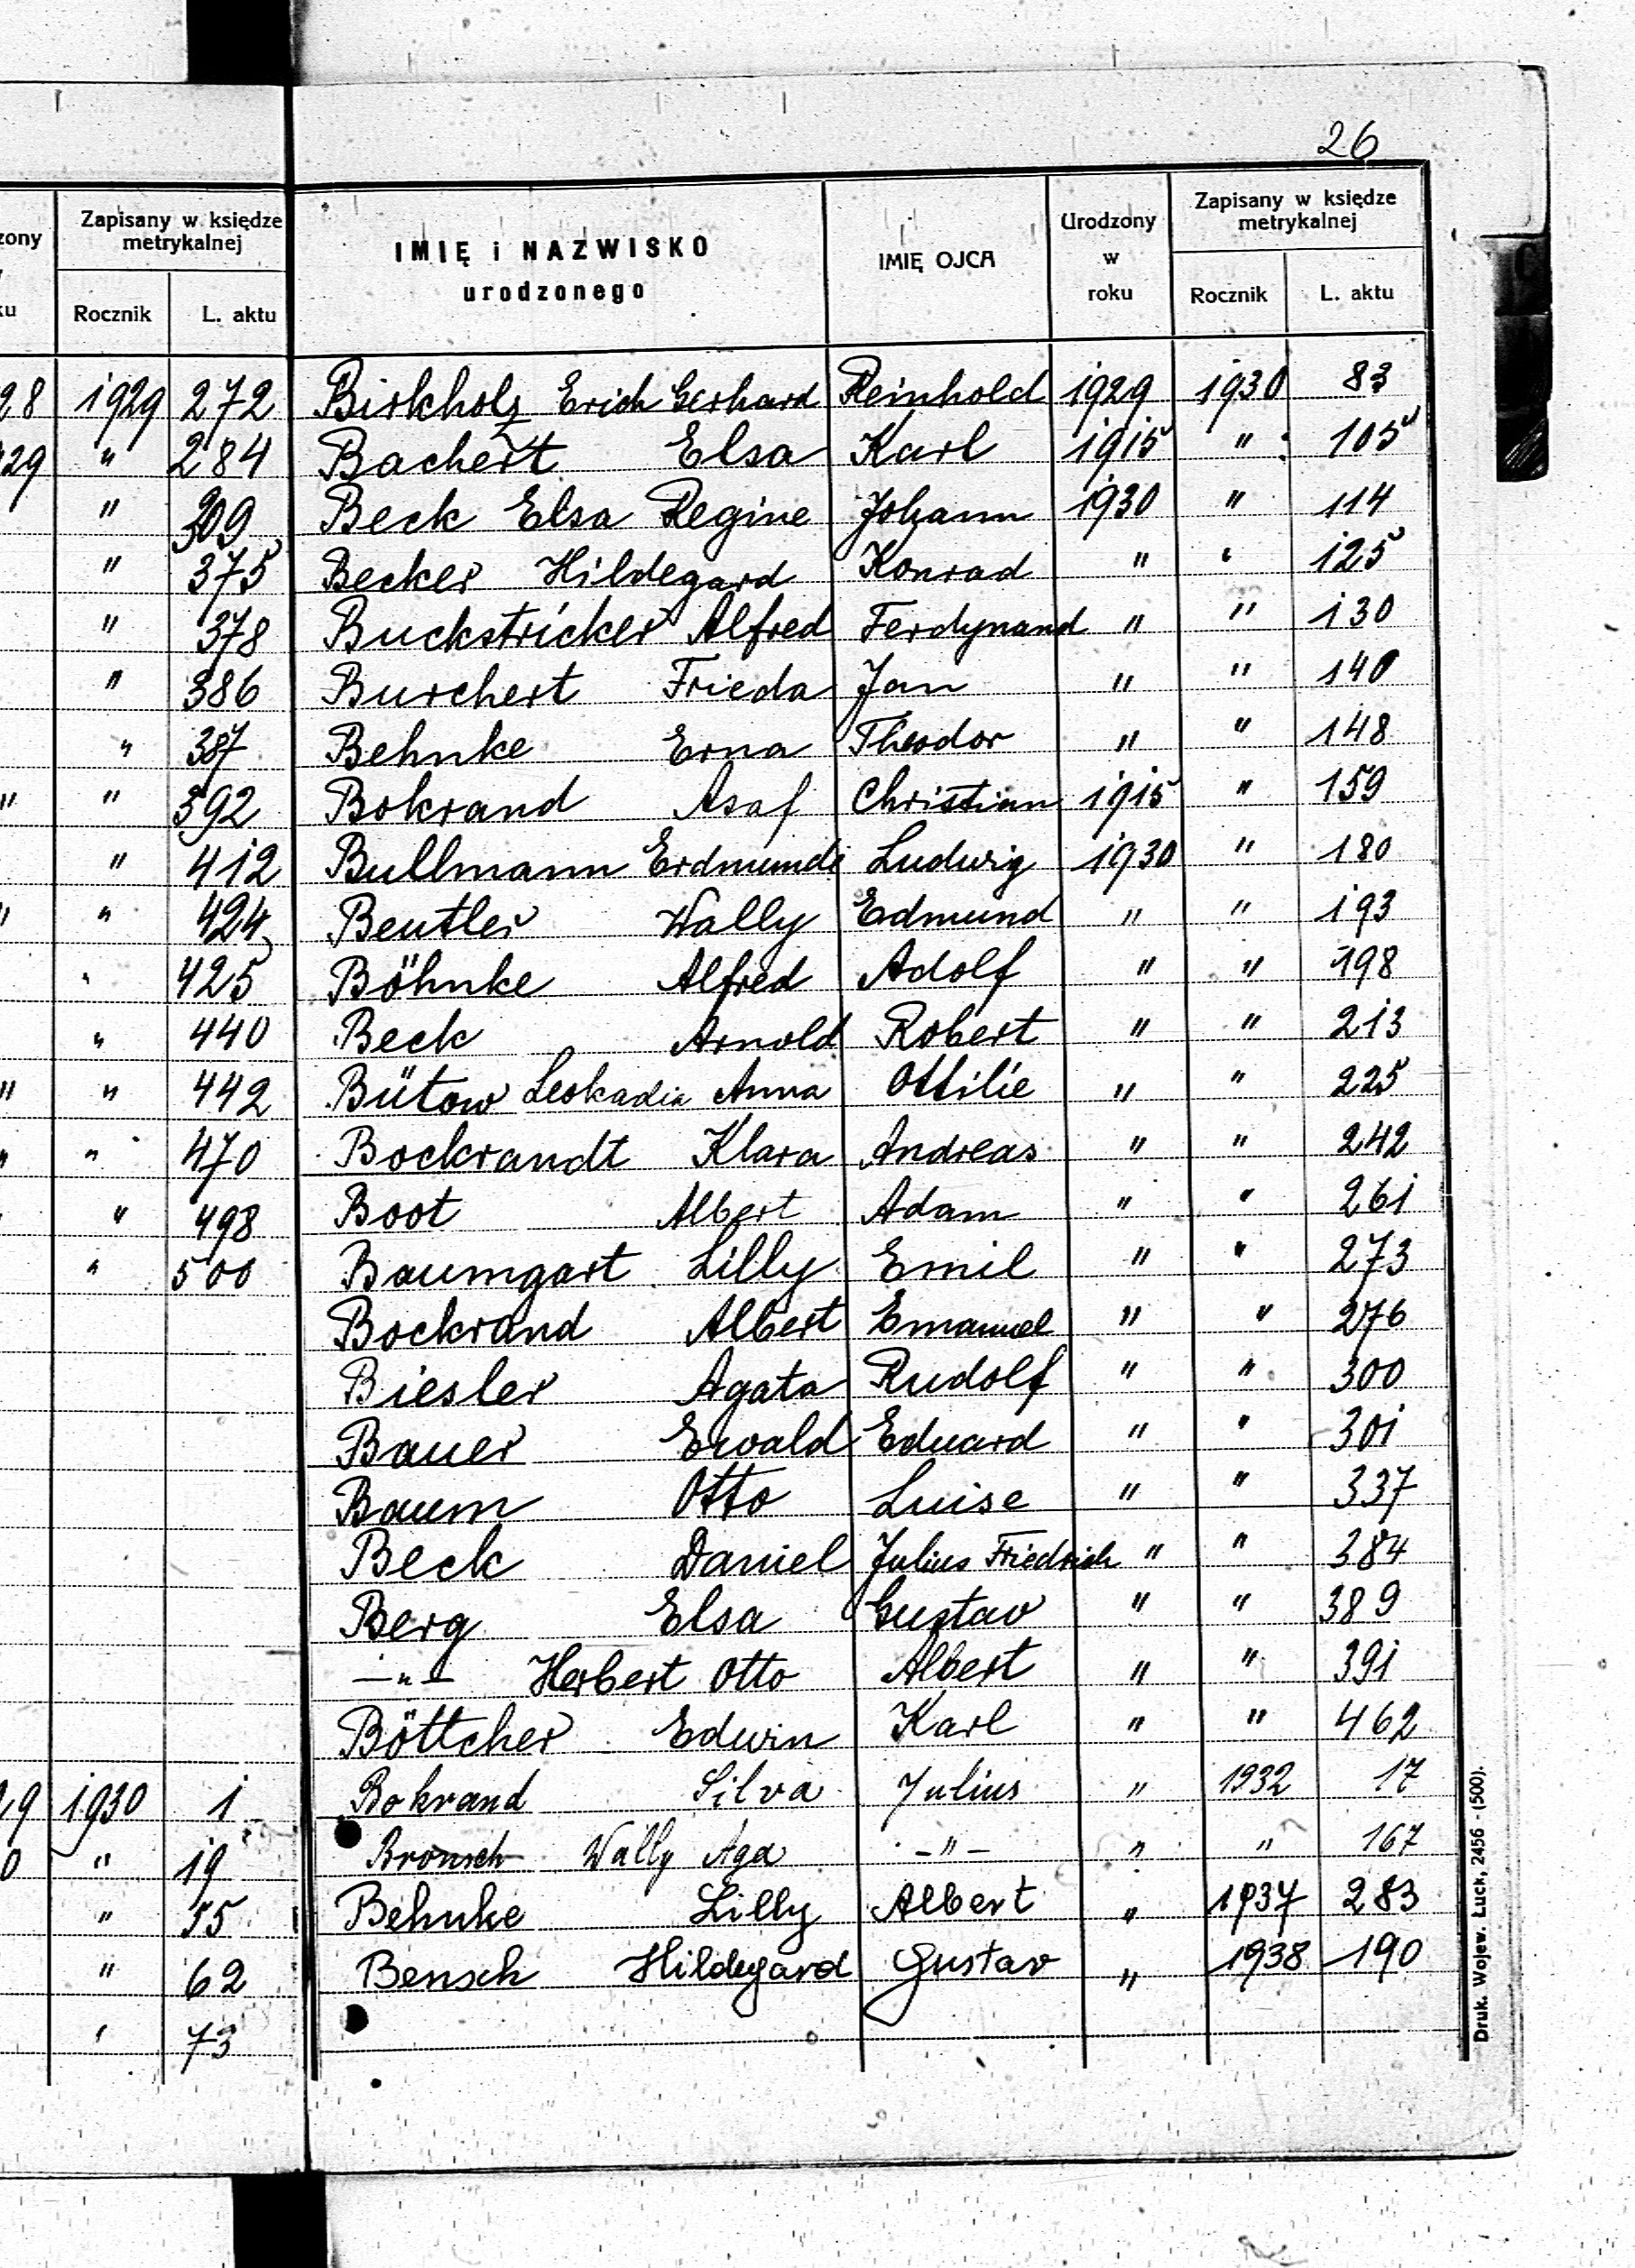 26
zony Zapisany w księdze metrykalnej IMIĘ i NAZWISKO urodzonego IMIĘ OJCA Urodzony w roku Zapisany w księdze metrykalnej
ku Rocznik L. aktu Rocznik L. aktu
28 1929 272 Birkholz Erich Gerhard Reinhold 1929 1930 83
29 " 284 Bachert Elsa Karl 1915 " 105
" 309 Beck Elsa Regine Johann 1930 " 114
" 375 Becker Hildegard Konrad " " 125
" 378 Buckstricker Alfred Ferdynand " " 130
" 386 Burchert Frieda Jan " " 140
" 387 Behnke Erna Theodor " " 148
" " 392 Bokrand Asaf Christian 1915 " 159
" 412 Bullmann Erdmunde Ludwig 1930 " 180
" " 424 Beutler Wally Edmund " " 193
" 425 Böhnke Alfred Adolf " " 198
" 440 Beck Arnold Robert " " 213
" " 442 Bütow Leokadia Anna Ottilie " " 225
" " 470 Bockrandt Klara Andreas " " 242
" 498 Boot Albert Adam " " 261
" 500 Baumgart Lilly Emil " " 273
Bockrand Albert Emanuel " " 276
Biesler Agata Rudolf " " 300
Bauer Ewald Eduard " " 301
Baum Otto Luise " " 337
Beck Daniel Julius Friedrich " " 384
Berg Elsa Gustav " " 389
—"— Herbert Otto Albert " " 391
Böttcher Edwin Karl " " 462
29 1930 1 Bokrand Silva Julius " 1932 17
0 " 19 Bronsch Wally Aga —"— " " 167
" 55 Behnke Lilly Albert " 1937 283
" 62 Bensch Hildegard Gustav " 1938 190
" 73
Druk. Wojew. Łuck, 2456 - (500).